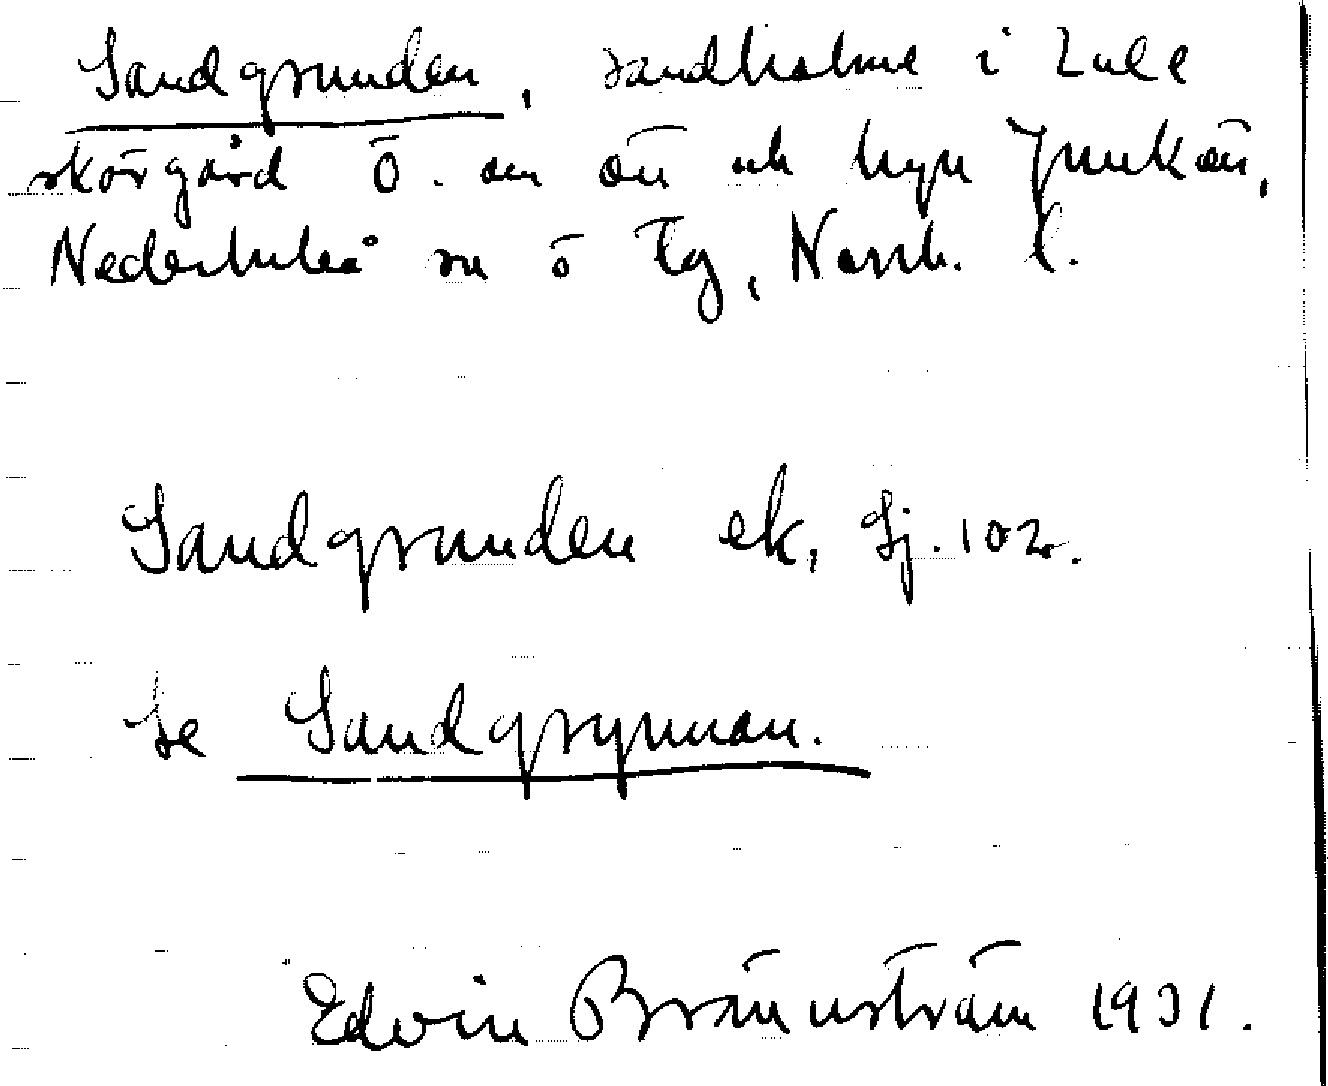 Sandgrunden, sandholme i Lule
skärgård Ö. om ön och byn Junkön,
Nederluleå sn ö tg, Norrb. l.
Sandgrunden ek, Sj. 102.
Se Sandgrynnan.
Edvin Brännström 1931.